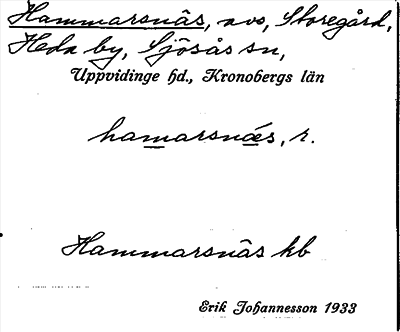 Hammarsnäs, avs, Storegård,
Heda by, Sjösås sn,
Uppvidinge hd., Kronobergs län
hamarsnäs, r.
Hammarsnäs hb
Erik Johannesson 1933